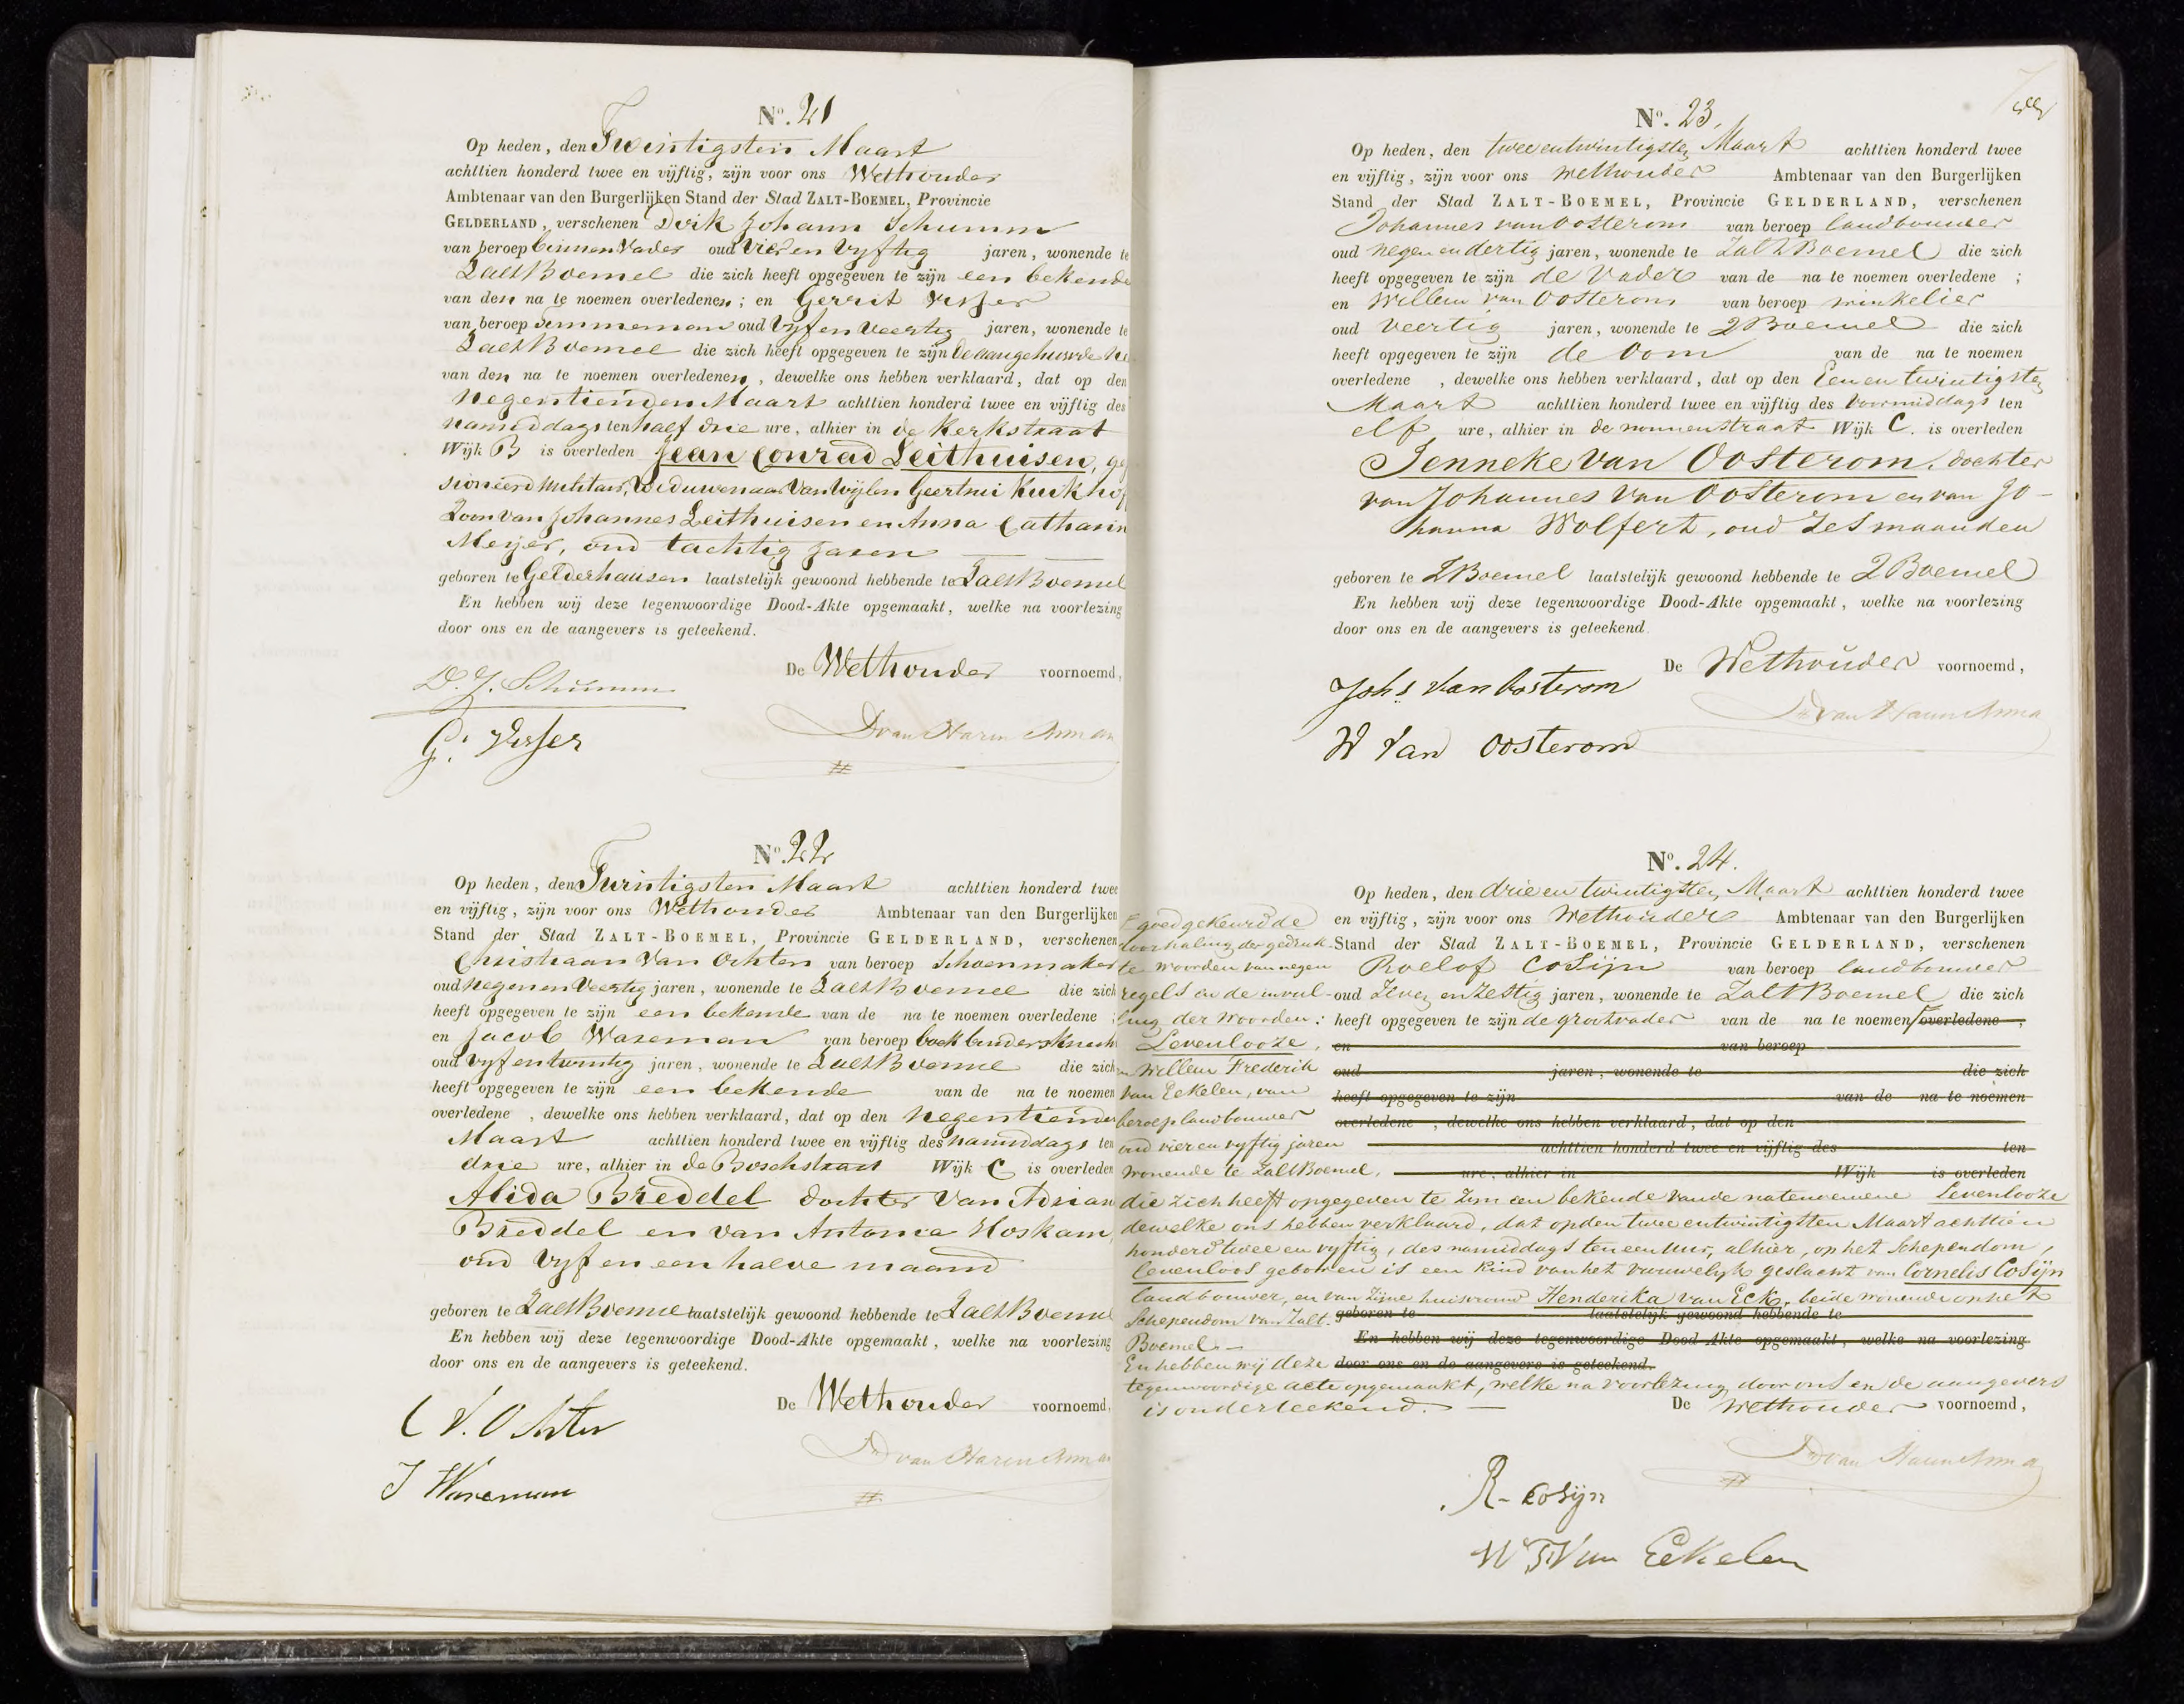 No. 21
Op heden, den Twintigsten Maart
achttien honderd twee en vijftig, zijn voor ons Wethouder
Ambtenaar van den Burgerlijken Stand der Stad ZALT-BOEMEL, Provincie
GELDERLAND, verschenen Dirk Johann Schumm
van beroep binnenVader oud Vier en Vyftig jaren, wonende te
ZaltBoemel die zich heeft opgegeven te zijn een bekende
van den na te noemen overledenen; en Gerrit Visser
van beroep timmerman oud Vyf en Veertig jaren, wonende te
ZaltBoemel die zich heeft opgegeven te zijn de aangehuwde
van den na te noemen overledenen, dewelke ons hebben verklaard, dat op den
Negentienden Maart achttien honderd twee en vijftig des
namiddags ten half drie ure, alhier in de Kerkstraat
Wijk B is overleden Jean Conrad Leithuisen,
sioneerd Militair, Weduwenaar Van Wylen Geertrui
Zoon van Johannes Leithuisen en Anna Catharin
Meyer, oud tachtig jaren
geboren te Gelderhausen laatstelijk gewoond hebbende te ZaltBoemel
En hebben wij deze tegenwoordige Dood-Akte opgemaakt, welke na voorlezing
door ons en de aangevers is geteekend.
De Wethouder voornoemd,
D. J. Schumm
G. Visser
D van Haren Noman
No. 22
Op heden, den Twintigsten Maart achttien honderd twee
en vijftig, zijn voor ons Wethouder Ambtenaar van den Burgerlijken
Stand der Stad ZALT-BOEMEL, Provincie GELDERLAND, verschenen
Christiaan Van Ochten van beroep Schoenmaker
oud Negen en Veertig jaren, wonende te ZaltBoemel die zich
heeft opgegeven te zijn een bekende van de na te noemen overledene ;
en Jacob Waseman van beroep boekbindersknecht
oud vyf en twintig jaren, wonende te ZaltBoemel die zich
heeft opgegeven te zijn een bekende van de na te noemen
overledene , dewelke ons hebben verklaard, dat op den Negentienden
Maart achttien honderd twee en vijftig des namiddags ten
drie ure, alhier in de Boschstraat Wijk C is overleden
Alida Breddel dochter Van Adrian
Breddel en van Antonia Hoskam,
oud Vyf en een halve maand
geboren te ZaltBoemel laatstelijk gewoond hebbende te ZaltBoemel
En hebben wij deze tegenwoordige Dood-Akte opgemaakt, welke na voorlezing
door ons en de aangevers is geteekend.
De Wethouder voornoemd,
C V. Ochten
J Waseman
D van Haren Noman
No. 23.
Op heden, den tweeentwintigsten Maart achttien honderd twee
en vijftig, zijn voor ons wethouder Ambtenaar van den Burgerlijken
Stand der Stad ZALT-BOEMEL, Provincie GELDERLAND, verschenen
Johannes van Oosterom van beroep landbouwer
oud negen en dertig jaren, wonende te ZaltBoemel die zich
heeft opgegeven te zijn de Vader van de na te noemen overledene ;
en Willem van Oosterom van beroep winkelier
oud Veertig jaren, wonende te ZBoemel die zich
heeft opgegeven te zijn de Oom van de na te noemen
overledene , dewelke ons hebben verklaard, dat op den Een en twintigsten
Maart achttien honderd twee en vijftig des Voormiddags ten
elf ure, alhier in de nonnenstraat Wijk C. is overleden
Jenneke Van Oosterom, dochter
van Johannes Van Oosterom en van Jo-
hanna Wolfert, oud Zes maanden
geboren te ZBoemel laatstelijk gewoond hebbende te ZBoemel
En hebben wij deze tegenwoordige Dood-Akte opgemaakt, welke na voorlezing
door ons en de aangevers is geteekend.
De Wethouder voornoemd,
Johs Van Oosterom
W Van Oosterom
D van Haren Noman
No. 24.
Op heden, den drie en twintigsten Maart achttien honderd twee
en vijftig, zijn voor ons Wethouder Ambtenaar van den Burgerlijken
Stand der Stad ZALT-BOEMEL, Provincie GELDERLAND, verschenen
Roelof Cosijn van beroep landbouwer
oud Zeven en Zestig jaren, wonende te ZaltBoemel die zich
heeft opgegeven te zijn de grootvader van de na te noemen overledene ,
en van beroep
oud jaren, wonende te die zich
heeft opgegeven te zijn van de na te noemen
overledene , dewelke ons hebben verklaard, dat op den
achttien honderd twee en vijftig des ten
ure, alhier in Wijk is overleden
goedgekeurd de
doorhaling der gedruk-
te woorden van negen
regels en de invul-
ling der woorden:
Levenlooze,
en Willem Frederik
Van Eekelen, van
beroep landbouwer
oud vier en vyftig jaren
wonende te ZaltBoemel,
die zich heeft opgegeven te zyn een bekende van de natenoemene Levenlooze
dewelke ons hebben verklaard, dat op den twee entwintigsten Maart achttien
honderd twee en vyftig, des namiddags ten een uur, alhier, op het Schependom,
levenloos geboren is een kind van het vrouwelyk geslacht van Cornelis Cosijn
landbouwer, en van zijne huisvrouw Henderika van Eck, beide wonende op het
Schependom van Zalt. geboren te laatstelijk gewoond hebbende te
Boemel — En hebben wij deze tegenwoordige Dood-Akte opgemaakt, welke na voorlezing
En hebben wij deze door ons en de aangevers is geteekend.
tegenwoordige acte opgemaakt, welke na voorlezing door ons en de aangevers
is onderteekend. —
De Wethouder voornoemd,
D van Haren Noman
R- Cosijn
W F Van Eekelen